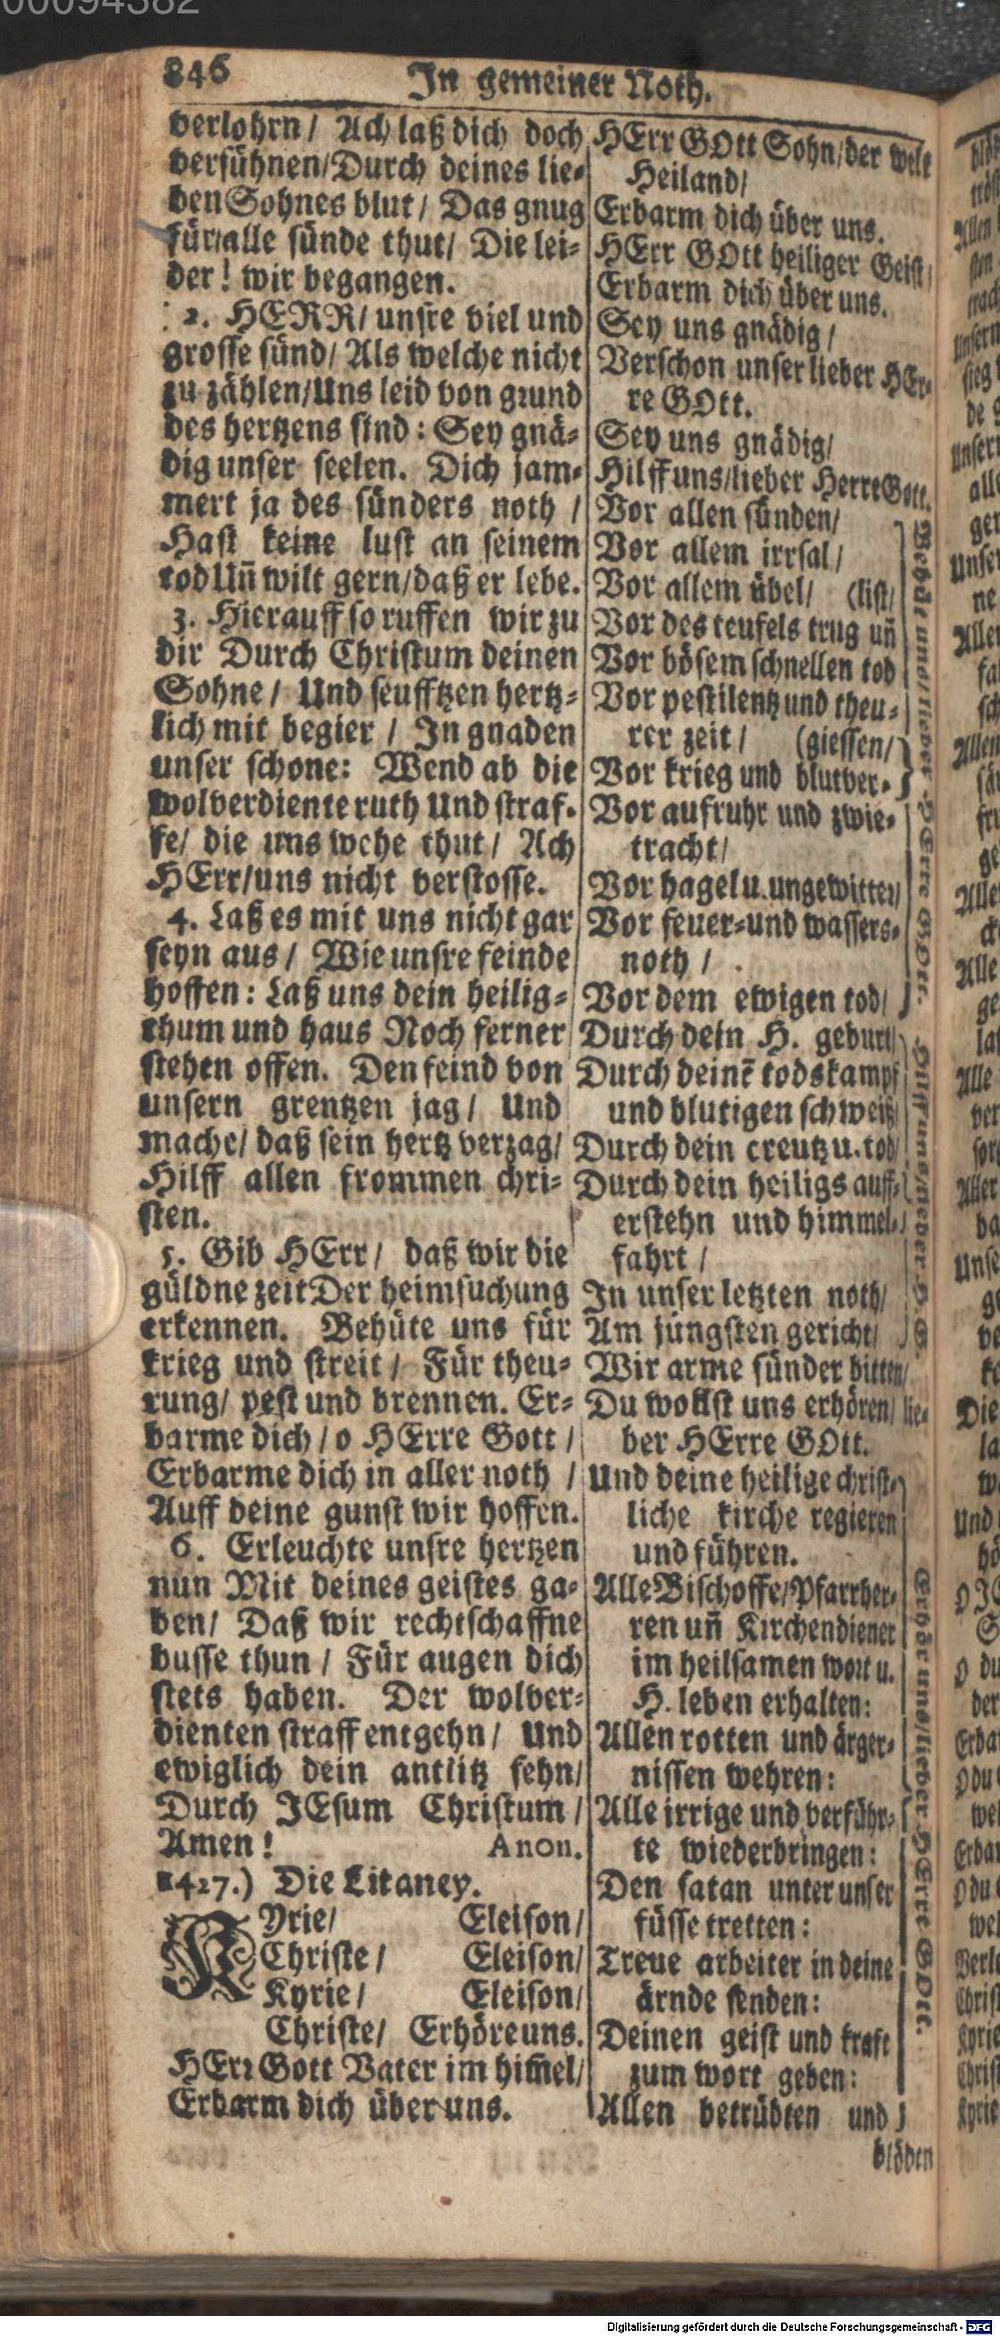 00094382
846
In gemeiner Noth.
verlohrn/ Ach laß dich doch
versühnen/Durch deines lie-
ben Sohnes blut/ Das gnug
für alle sünde thut/ Die lei-
der! wir begangen.
2. HERR/ unsre viel und
grosse sünd/ Als welche nicht
zu zählen/Uns leid von grund
des hertzens sind: Sey gnä-
dig unser seelen. Dich jam-
mert ja des sünders noth /
Hast keine lust an seinem
tod Uñ wilt gern/daß er lebe.
3. Hierauff so ruffen wir zu
dir Durch Christum deinen
Sohne/ Und seufftzen hertz-
lich mit begier / In gnaden
unser schone: Wend ab die
wolverdiente ruth Und straf-
fe/ die uns wehe thut/ Ach
HErr/uns nicht verstosse.
4. Laß es mit uns nicht gar
seyn aus / Wie unsre feinde
hoffen: Laß uns dein heilig-
thum und haus Noch ferner
stehen offen. Den feind von
unsern grentzen jag/ Und
mache/ daß sein hertz verzag/
Hilff allen frommen chri-
sten.
5. Gib HErr/ daß wir die
güldne zeit Der heimsuchung
erkennen. Behüte uns für
krieg und streit / Für theu-
rung/ pest und brennen. Er-
barme dich / o HErre Gott /
Erbarme dich in aller noth /
Auff deine gunst wir hoffen.
6. Erleuchte unsre hertzen
nun Mit deines geistes ga-
ben/ Daß wir rechtschaffne
busse thun / Für augen dich
stets haben. Der wolver-
dienten straff entgehn/ Und
ewiglich dein antlitz sehn/
Durch JEsum Christum /
Amen! Anon.
1427.) Die Litaney.
KYrie/ Eleison/
Christe/ Eleison/
Kyrie/ Eleison/
Christe/ Erhöre uns.
HErr Gott Vater im him̃el/
Erbarm dich über uns.
HErr GOtt Sohn/der welt
Heiland/
Erbarm dich über uns.
HErr GOtt heiliger Geist/
Erbarm dich über uns.
Sey uns gnädig/
Verschon unser lieber HEr-
re GOtt.
Sey uns gnädig/
Hilff uns/lieber Herre Gott.
Vor allen sünden/
Vor allem irrsal/
Vor allem übel/ (list/
Vor des teufels trug uñ
Vor bösem schnellen tod
Vor pestilentz und theu-
rer zeit/ (giessen/
Vor krieg und blutver-
Vor aufruhr und zwie-
tracht/
Vor hagel u. ungewitter/
Vor feuer- und wassers-
noth /
Vor dem ewigen tod/
Behüt uns/lieber HErre GOtt.
Durch dein H. geburt/
Durch deinē todskampf
und blutigen schweiß/
Durch dein creutz u. tod/
Durch dein heiligs auff-
erstehn und himmel-
fahrt /
In unser letzten noth/
Am jüngsten gericht/
Hilff uns/lieber H. G.
Wir arme sünder bitten/
Du wollst uns erhören/ lie-
ber HErre GOtt.
Und deine heilige christ-
liche kirche regieren
und führen.
Alle Bischoffe/Pfarrher-
ren uñ Kirchendiener
im heilsamen wort u.
H. leben erhalten:
Allen rotten und ärger-
nissen wehren:
Alle irrige und verführ-
te wiederbringen:
Den satan unter unser
füsse tretten:
Treue arbeiter in deine
ärnde senden:
Deinen geist und kraft
zum wort geben:
Allen betrübten und
Erhör uns/lieber HErre GOtt.
blöden
Digitalisierung gefördert durch die Deutsche Forschungsgemeinschaft - DFG